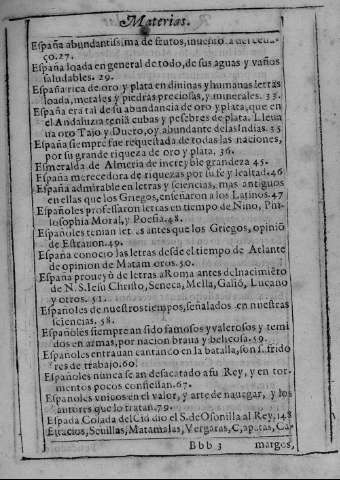 Materias.
España abundantissima de frutos,
ço.27.
España loada en general de todo, de sus aguas y vaños
saludables. 29.
España rica de oro y plata en diuinas y humanas letras
loada, metales y piedras preciosas, y minerales. 33.
España era tal de su abundancia de oro y plata, que en
el Andaluzia teniã cubas y pesebres de plata. Lleua
ua oro Tajo y Duero, oy abundante de las Indias. 35
España siempre fue requestada de todas las naciones,
por su grande riqueza de oro y plata. 36.
Esmeralda de Almeria de increyble grandeza 45.
España merecedora de riquezas por su fe y lealtad.46
España admirable en letras y sciencias, mas antiguos
en ellas que los Griegos, enseñaron a los Latinos.47
Españoles professaron letras en tiempo de Nino, Phi-
losophia Moral, y Poesia.48.
Españoles tenian letras antes que los Griegos, opiniõ
de Estrauon.49.
España conocio las letras desde el tiempo de Atlante
de opinion de Matamoros.50.
España proueyõ de letras a Roma antes del nacimiẽto
de N.S.Iesu Christo, Seneca, Mella, Galiõ, Lucano
y otros. 51.
Españoles de nuestros tiempos, señalados en nuestras
sciencias. 58.
Españoles siempre an sido famosos y valerosos y temi
dos en armas, por nacion braua y belicosa.59.
Españoles entrauan cantando en la batalla, son sufrido
res de trabajo.60.
Españoles nunca se an desacatado a su Rey, y en tor-
mentos pocos confiessan.67.
Españoles vnicos en el valor, y arte de nauegar, y los
autores que lo tratan.79.
Espada Colada del Cid dio el S. de Osonilla al Rey,148
Eustacios, Seuillas, Matamalas, Vergaras, Çapatas, Ca-
Bbb 3 margos,